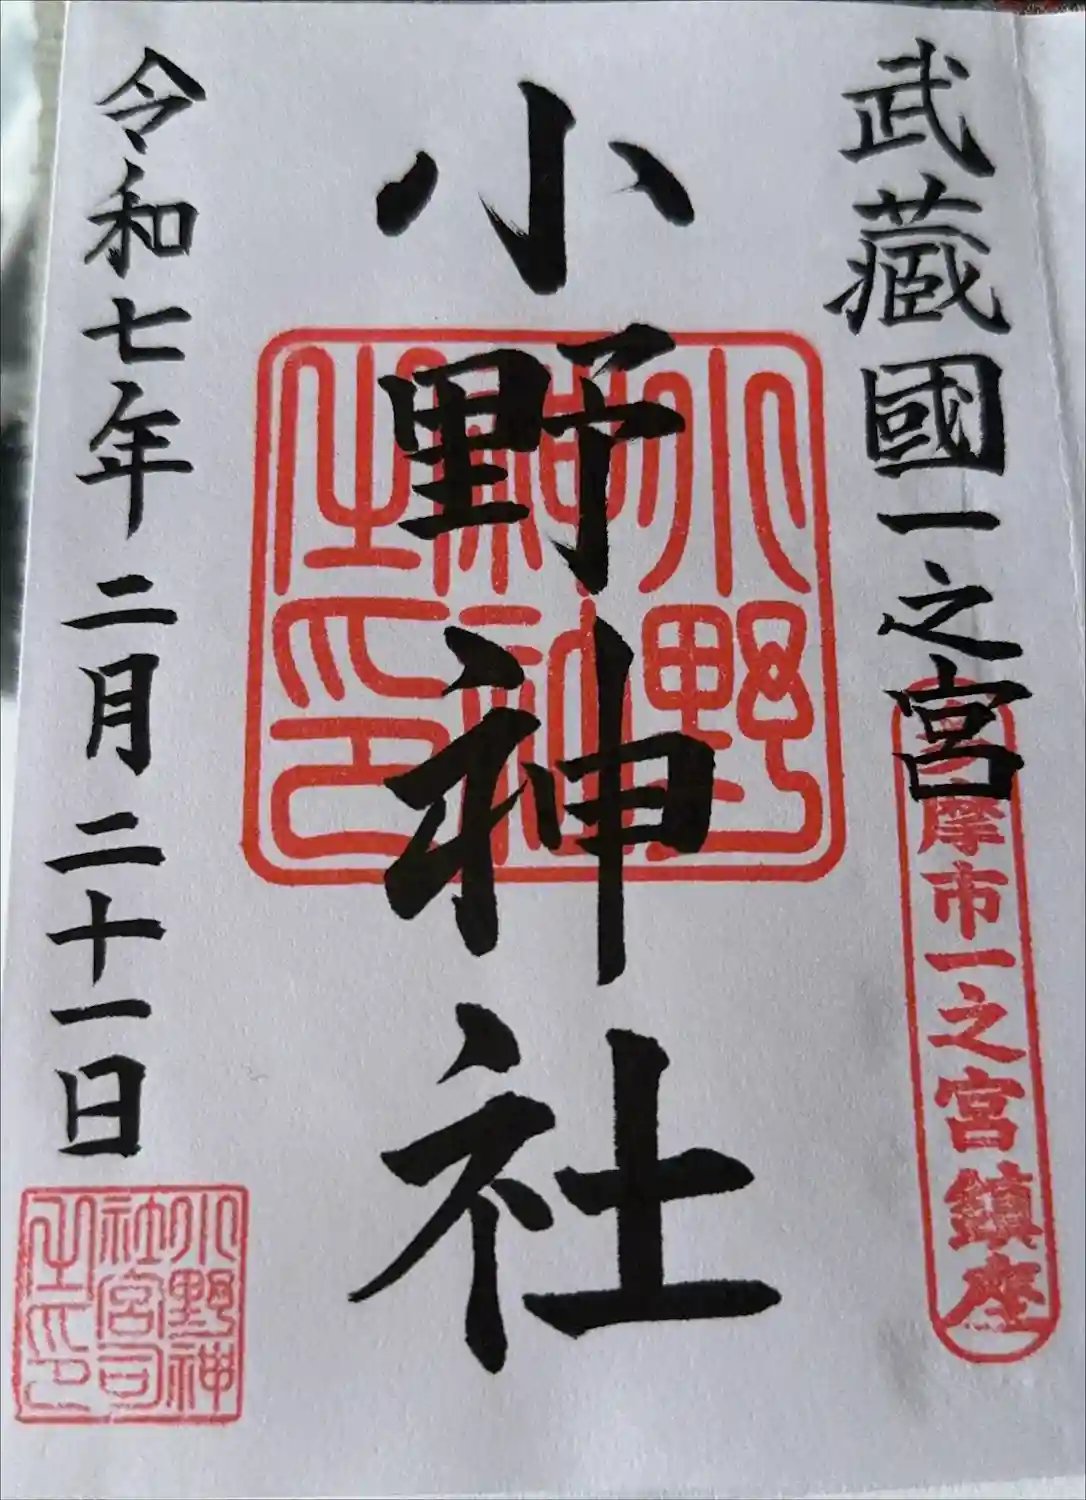 武蔵國一之宮
多摩市一之宮鎮座
小野神社
小野神社之印
令和七年二月二十一日
小野神社宮司之印